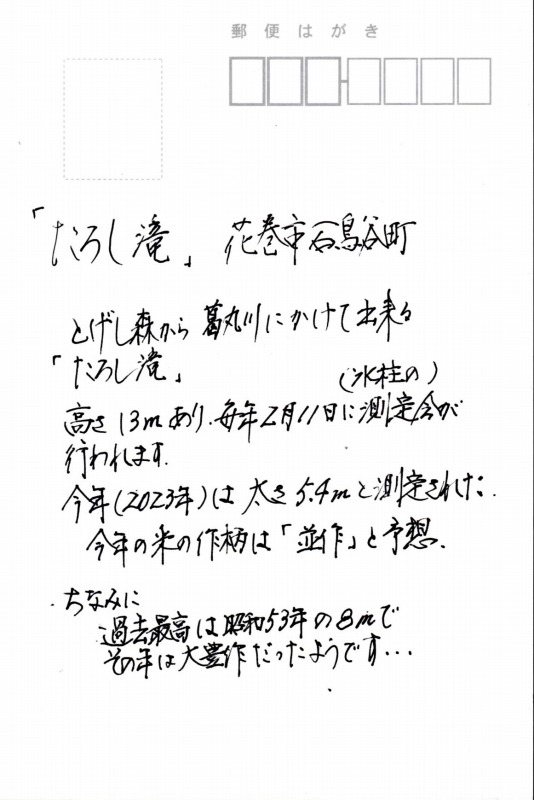 郵便はがき
「たろし滝」 花巻市石鳥谷町
とげし森から葛丸川にかけて出来る
「たろし滝」
(氷柱の)
高さ13mあり、毎年2月11日に測定会が
行われます.
今年(2023年)は太さ5.4mと測定された.
今年の米の作柄は「並作」と予想.
・ちなみに
過去最高は昭和53年の8mで
その年は大豊作だったようです・・・